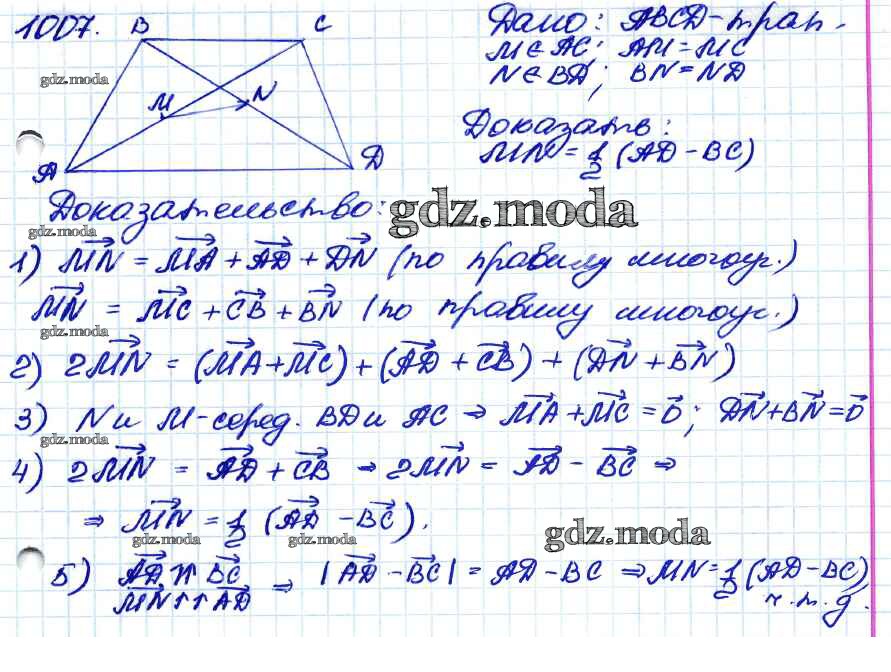 1007.
B C
M N
A D
gdz.moda
Дано: ABCD-трап.
M∈AC; AM=MC
N∈BD; BN=ND
Доказать:
MN = 1/2 (AD-BC)
Доказательство:
gdz.moda
gdz.moda
1) MN→ = MA→ + AD→ + DN→ (по правилу многоуг.)
MN→ = MC→ + CB→ + BN→ (по правилу многоуг.)
gdz.moda
2) 2MN→ = (MA→+MC→)+(AD→+CB→)+(DN→+BN→)
3) N и M-серед. BD и AC ⇒ MA→+MC→=0→; DN→+BN→=0→
gdz.moda
4) 2MN→ = AD→+CB→ → 2MN→ = AD→-BC→ ⇒
⇒ MN→ = 1/2 (AD→-BC→).
gdz.moda gdz.moda
gdz.moda
5) AD→ ↑↑ BC→ ⇒ |AD→-BC→| = AD-BC ⇒ MN=1/2(AD-BC)
MN→↑↑AD→ ч.т.д.